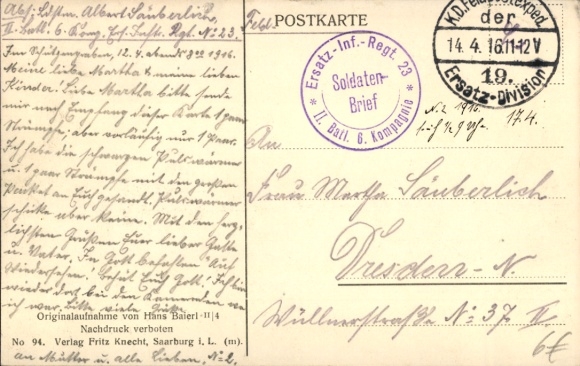 Abs: Ldstm. Albert Säuberlich,
II. Batl. 6. Komp. Ers. Inftr. Regt. No 23.
Im Schützengraben, 12. 4. abends 8 30 1916.
Meine liebe Martha & meine lieben
Kinder. Liebe Martha bitte sende
mir nach Empfang dieser Karte 1 paar
Strümpfe, aber vorläufig nur 1 Paar.
Ich habe die schwarzen Pulswärmer
u. 1 paar Strümpfe mit dem großen
Paket an Euch gesandt. Pulswärmer
schicke aber keine. Mit den herz-
lichsten Grüßen Euer lieber Gatte
u. Vater. In Gott befohlen. Auf
Wiedersehen! Behüt Euch Gott! Ich bin
wieder dort bei den Kameraden wo
ich war, bitte viele
Originalaufnahme von Hans Baierl - II|4
Nachdruck verboten
No 94. Verlag Fritz Knecht, Saarburg i. L. (m).
an Mutter u. alle Lieben. No 2.
Feld.
POSTKARTE
Ersatz-Inf.-Regt. 23
Soldaten-
Brief
II. Batl. 6. Kompagnie
K.D. Feldpostexped.
der
14.4.16.11-12V
19.
Ersatz-Division
No 2 1916.
früh ½ 9 Uhr. 17.4.
An
Frau Martha Säuberlich
Dresden-N.
Wüllnerstraße No 37 II.
6€